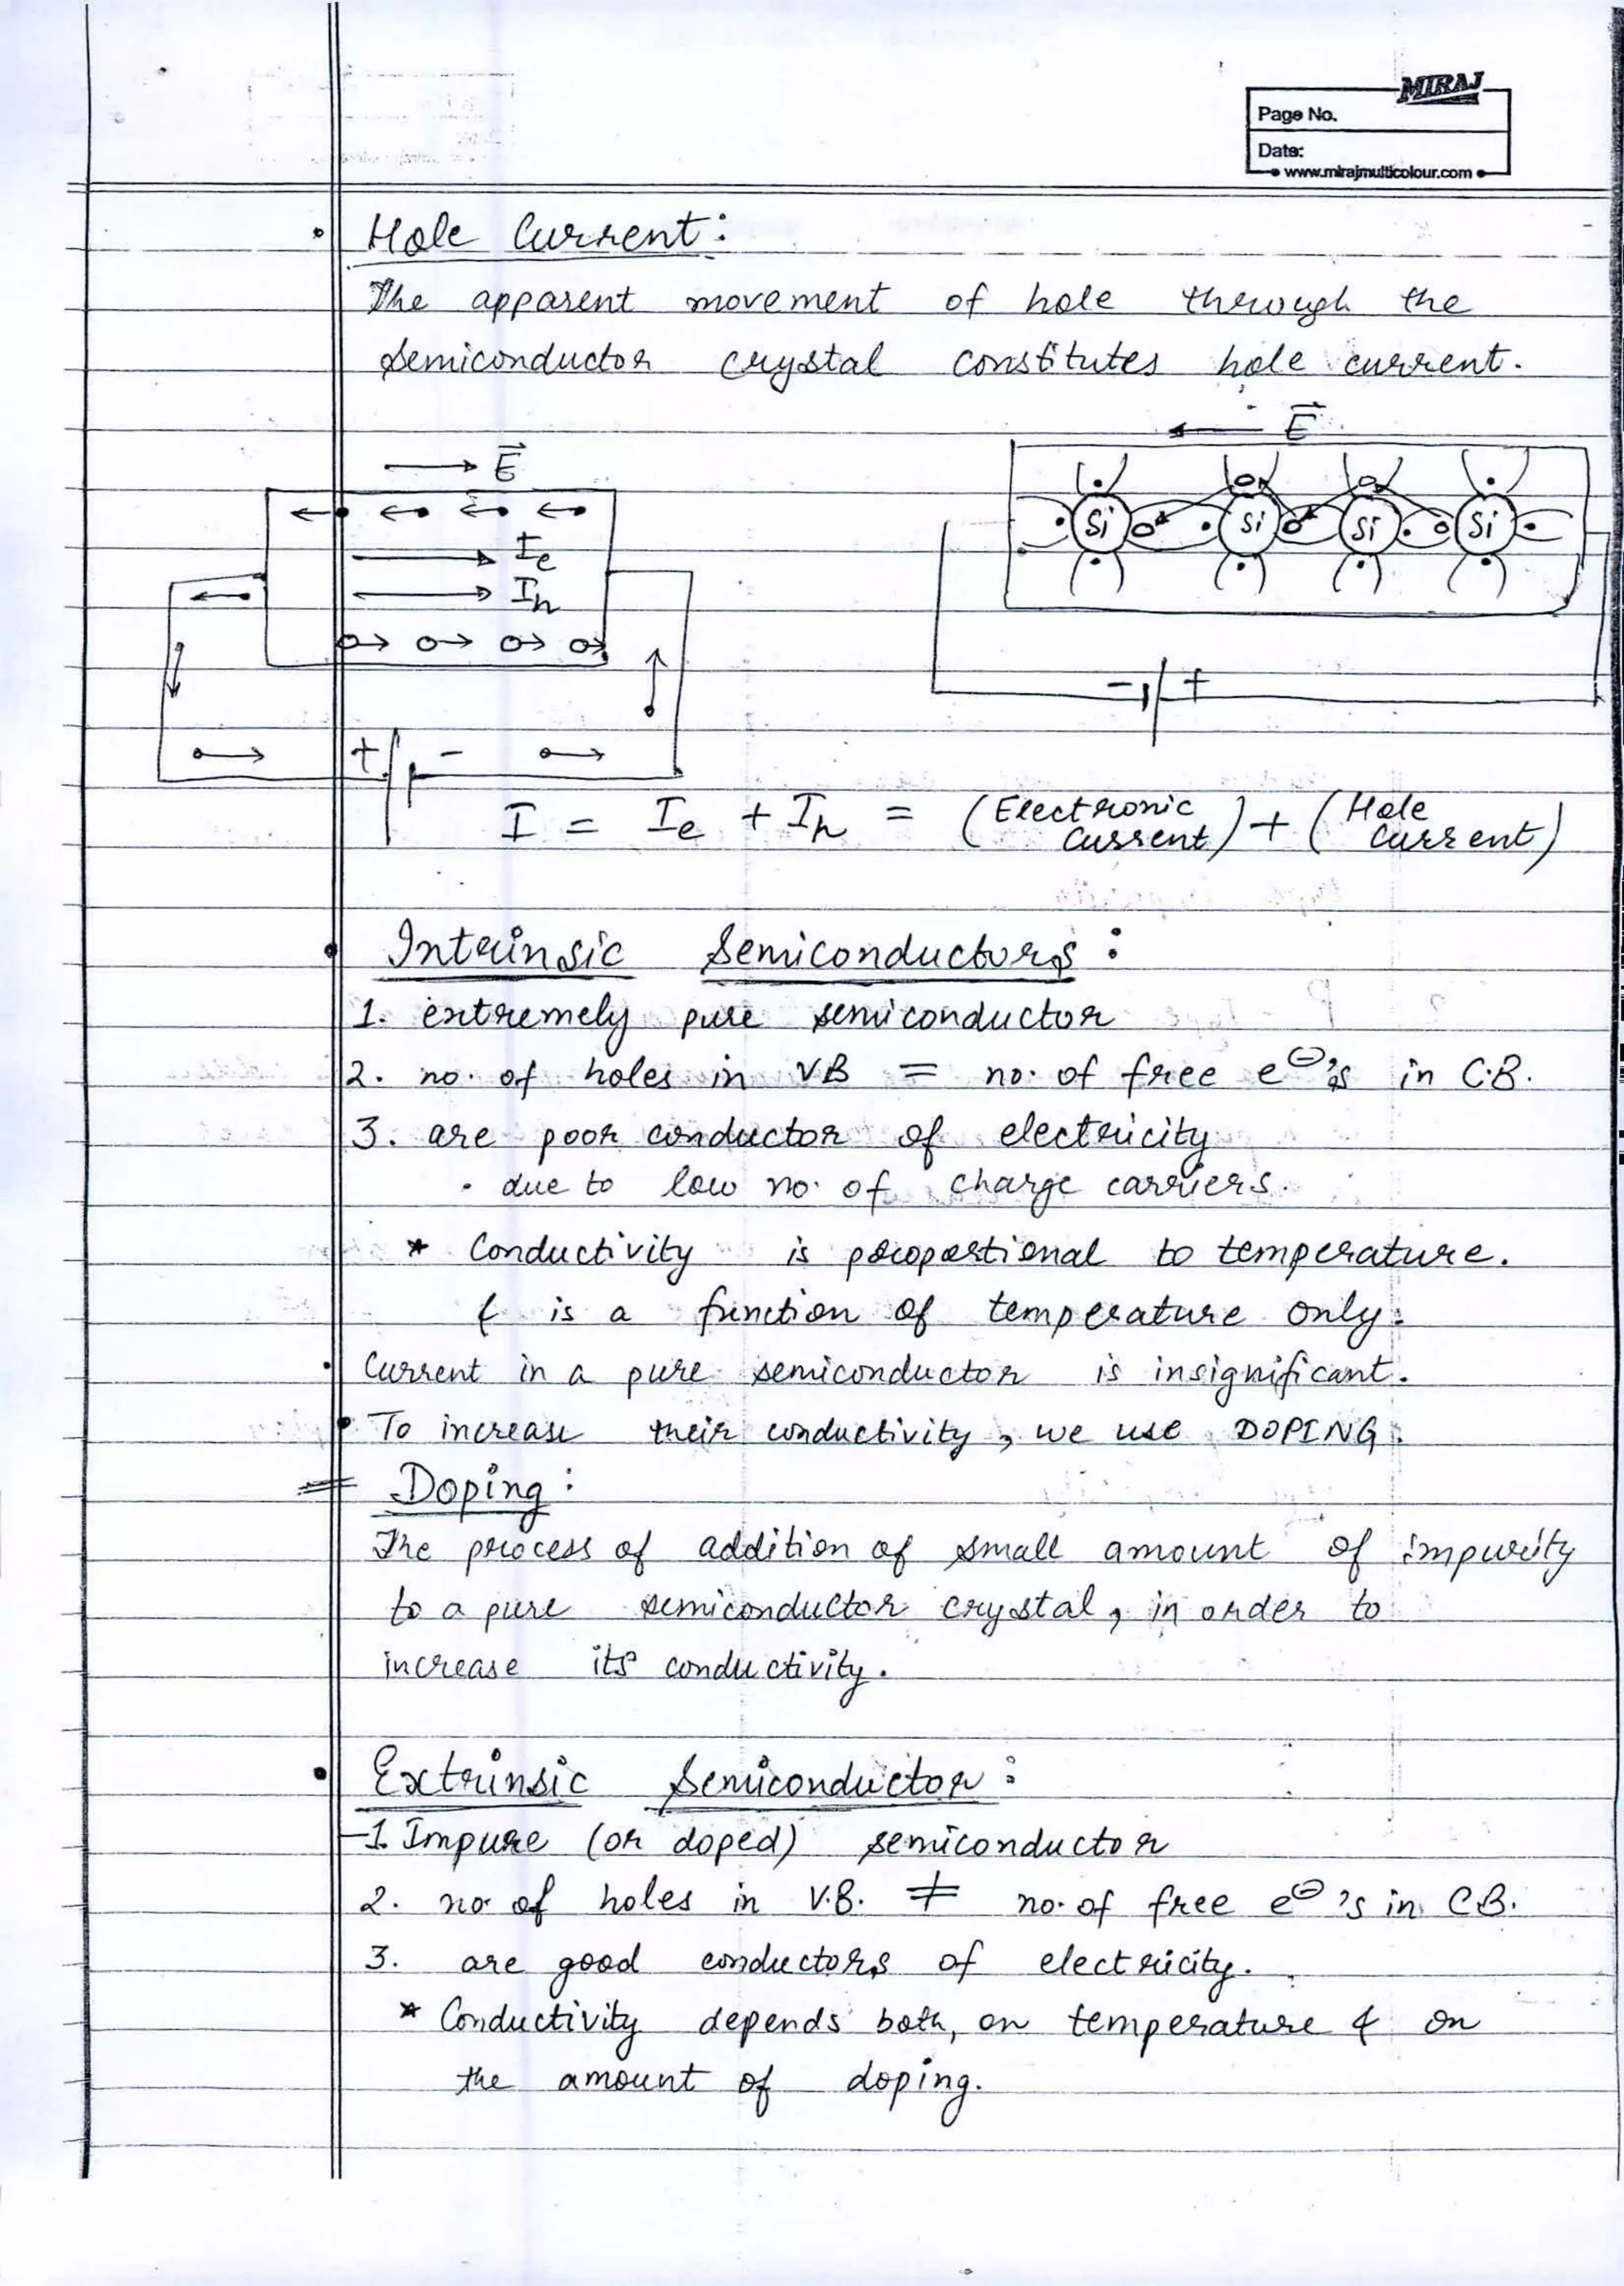 MIRAJ
Page No.
Date:
www.mirajmulticolour.com
• Hole Current:
The apparent movement of hole through the
semiconductor crystal constitutes hole current.
E
E
Ie
Ih
Si Si Si Si
- +
+ -
I = Ie + Ih = (Electronic Current) + (Hole Current)
• Intrinsic Semiconductors:
1. extremely pure semiconductor
2. no. of holes in VB = no. of free e⊖'s in C.B.
3. are poor conductor of electricity
• due to low no. of charge carriers.
* Conductivity is proportional to temperature.
& is a function of temperature only.
• Current in a pure semiconductor is insignificant.
• To increase their conductivity, we use DOPING.
= Doping:
The process of addition of small amount of impurity
to a pure semiconductor crystal, in order to
increase its conductivity.
• Extrinsic Semiconductor:
1. Impure (or doped) semiconductor
2. no. of holes in V.B. ≠ no. of free e⊖'s in CB.
3. are good conductors of electricity.
* Conductivity depends both, on temperature & on
the amount of doping.